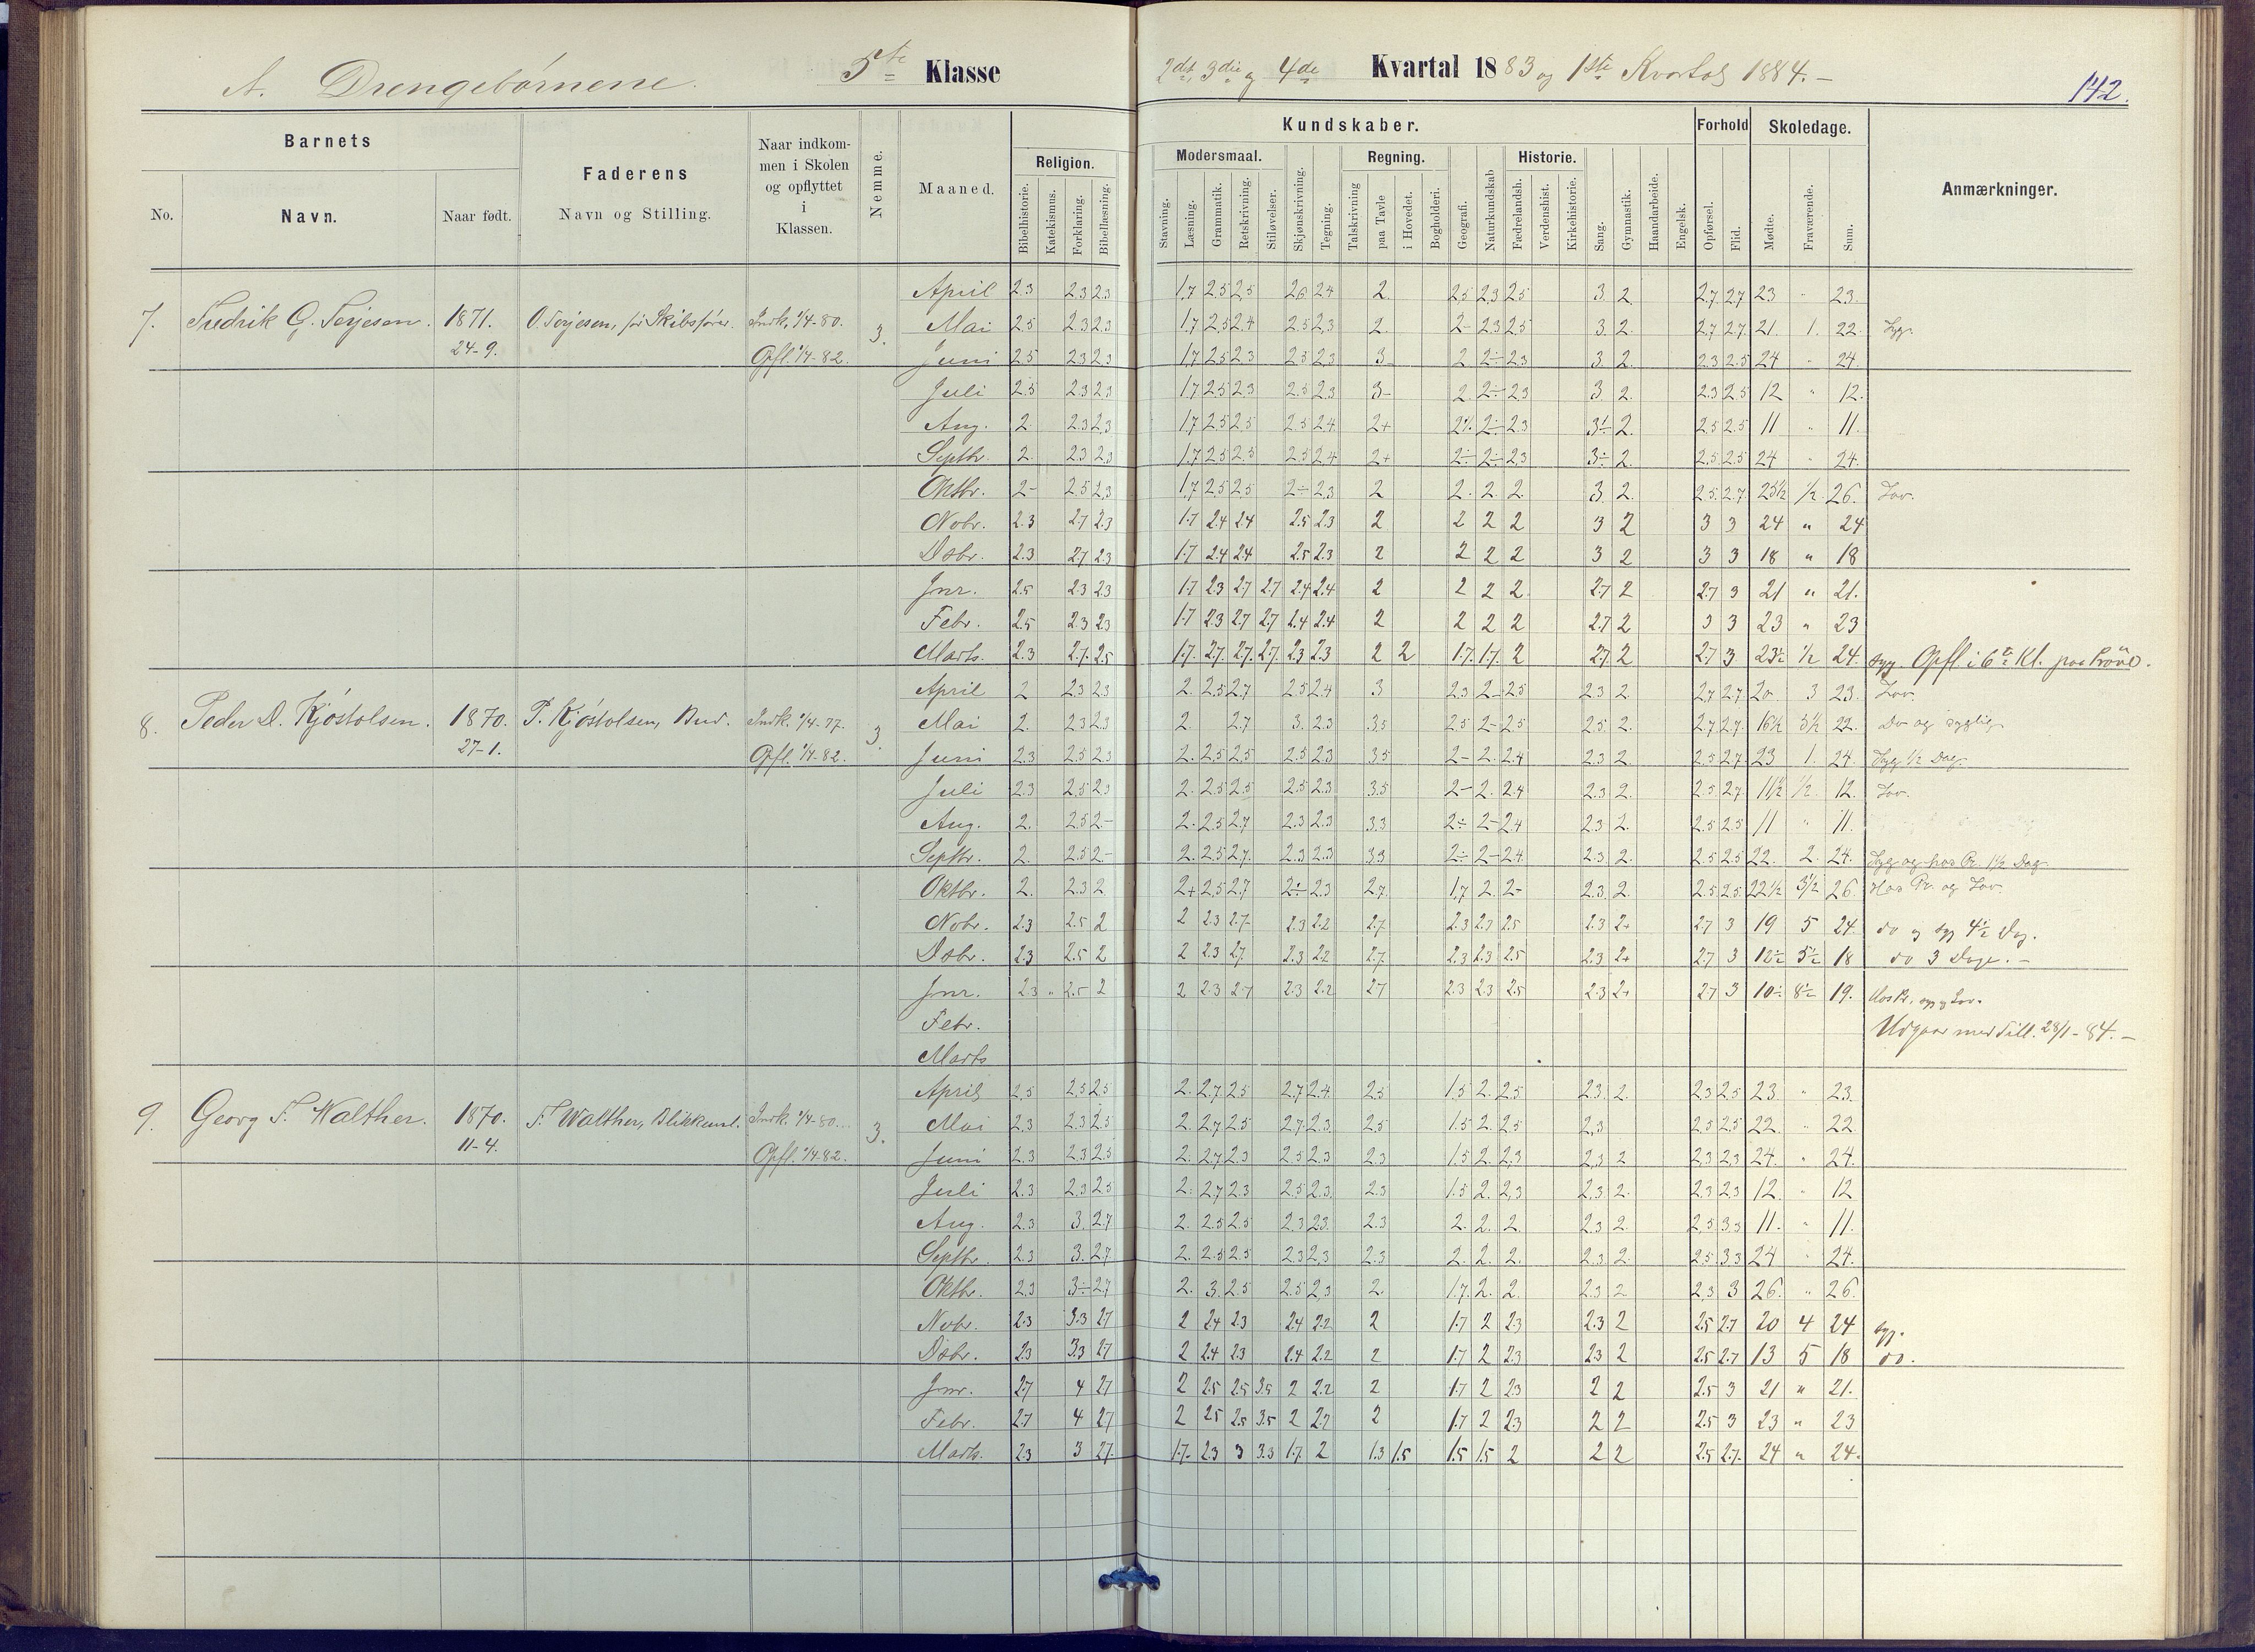 A. Drengebørnene. 5te Klasse 2det, 3die og 4de Kvartal 1883 og 1ste Kvartal 1884. –
142.
Barnets Faderens Naar indkommen i Skolen og opflyttet i Klassen. Nemme. Maaned. Kundskaber. Forhold Skoledage. Anmærkninger.
No. Navn. Naar født. Navn og Stilling. Religion. Modersmaal. Regning. Historie.
Bibelhistorie. Katekismus. Forklaring. Bibellæsning. Stavning. Læsning. Grammatik. Retskrivning. Stiløvelser. Skjønskrivning. Tegning. Talskrivning paa Tavle i Hovedet. Bogholderi. Geografi. Naturkundskab Fædrelandsh. Verdenshist. Kirkehistorie. Sang. Gymnastik. Haandarbeide. Engelsk. Opførsel. Flid. Møde. Fraværende. Sum.
April 2.3 2.3 2.3 1.7 2.5 2.5 2.6 2.4 2. 2.5 2.3 2.5 3. 2. 2.7 2.7 23 " 23.
7. Fredrik G. Terjesen. 1871. O. Terjesen, før Skibsfører. Indk. 1/4-80. 3. Mai 2.5 2.3 2.3 1.7 2.5 2.4 2.5 2.3 2. 2- 2.3 2.5 3. 2. 2.7 2.7. 21. 1. 22. Syg.
24-9. Opfl. 1/4-82. Juni 2.5 2.3 2.3 1.7 2.5 2.3 2.5 2.3 3- 2 2÷ 2.3 3. 2. 2.3 2.5 24 " 24.
Juli 2.5 2.3 2.3 1.7 2.5 2.3 2.5 2.3 3- 2. 2÷ 2.3 3. 2. 2.3 2.5 12 " 12.
Aug. 2. 2.3 2.3 1.7 2.5 2.5 2.5 2.4 2+ 2÷ 2.3 3÷ 2. 2.5 2.5 11 " 11.
Septbr. 2. 2.3 2.3 1.7 2.5 2.5 2.5 2.4 2+ 2÷ 2÷ 2.3 3÷ 2. 2.5 2.5 24 " 24.
Oktbr. 2- 2.5 2.3 1.7 2.5 2.5 2÷ 2.3 2 2. 2. 2. 3. 2. 2.5. 2.7 25½ ½ 26. Lov.
Nobr. 2.3 2.7 2.3 1.7 2.4 2.4 2.5 2.3 2 2 2 2 3 2 3 3 24 " 24
Dsbr. 2.3 2.7 2.3 1.7 2.4 2.4 2.5 2.3 2 2 2 2 3 2 3 3 18 " 18
Jnr. 2.5 2.3 2.3 1.7 2.3 2.7 2.7 2.4 2.4 2 2 2 2. 2.7 2 2.7 3 21 " 21.
Febr. 2.5 2.3 2.3 1.7 2.3 2.7 2.7 2.4 2.4 2 2 2 2 2.7 2 3 3 23 " 23
Marts. 2.3 2.7. 2.5 1.7. 2.7. 2.7. 2.7. 2.3 2.3 2 2 1.7. 1.7. 2 2.7. 2 2.7 3 23½ ½ 24. syg. Opfl. i 6te Kl. paa Prøve.
April 2 2.3 2.3 2. 2.5 2.7. 2.5 2.4 3 2.3 2- 2.5 2.3 2. 2.7 2.7 20 3 23. Lov.
8. Peder D. Kjøstolsen. 1870. P. Kjøstolsen, Bud. Indk. 1/4-77. 3. Mai 2. 2.3 2.3 2. 2.7. 3. 2.3 3.5 2.5 2- 2.5 2.5 2. 2.7 2.7. 16½ 5½ 22. Do og sygelig.
27-1. Opfl. 1/4-82. Juni 2.3 2.5 2.3 2. 2.5 2.5 2.5 2.3 3.5 2- 2. 2.4 2.3 2. 2.5 2.7. 23 1. 24. Syg ½ Dag.
Juli 2.3 2.5 2.3 2. 2.5 2.5 2.5 2.3 3.5 2- 2. 2.4 2.3 2. 2.5 2.7 11½ ½ 12. Lov.
Aug. 2. 2.5 2- 2. 2.5 2.7 2.3 2.3 3.3 2÷ 2- 2.4 2.3 2. 2.5 2.5 11 " 11.
Septbr. 2. 2.5 2- 2. 2.5 2.7. 2.3 2.3 3.3 2÷ 2- 2.4 2.3 2. 2.5 2.5 22. 2. 24. Syg og hos Pr. 1½ Dag.
Oktbr. 2. 2.3 2 2+ 2.5 2.7 2÷ 2.3 2.7. 1.7 2. 2- 2.3 2. 2.5 2.5 22½ 3½ 26. Hos Pr. og Lov.
Nobr. 2.3 2.5 2 2 2.3 2.7. 2.3 2.2 2.7. 2.3 2.3 2.5 2.3 2+ 2.7 3 19 5 24. do og syg 4½ Dag.
Dsbr. 2.3 2.5 2 2 2.3 2.7. 2.3 2.2 2.7. 2.3 2.3 2.5 2.3 2+ 2.7 3 12½ 5½ 18 do 3 Dage. –
Jnr. 2.3 " 2.5 2 2 2.3 2.7 2.3 2.2 2.7 2.3 2.3 2.5 2.3 2+ 2.7 3 10½ 8½ 19. Hos Pr. syg og Lov.
Febr. Udgaar med Till. 23/1-84. –
Marts
April 2.5 2.5 2.5 2. 2.7. 2.5 2.7 2.4. 2.5 1.5 2. 2.5 2.3. 2. 2.3 2.5 23. " 23.
9. Georg F. Walther. 1870. F. Walther, Blikkensl. Indk. 1/4-80. 3. Mai 2.3 2.3 2.5 2. 2.7 2.5 2.7. 2.3. 2.5 1.5 2. 2.5 2.3 2.5 2.5 22. " 22.
11-4. Opfl. 1/4-82. Juni 2.3 2.3 2.5 2. 2.7 2.3 2.5 2.3 2.3 1.5 2. 2.3 2.3 2 2.3 2.3 24. " 24.
Juli 2.3 2.3 2.5 2. 2.7 2.3 2.5 2.3. 2.3 1.5 2. 2.3 2.3 2. 2.3 2.3 12. " 12
Aug. 2.3 3. 2.7 2. 2.5 2.5 2.3 2.3. 2.3 2. 2. 2. 2.3 2. 2.5 3.3 11. " 11.
Septbr. 2.3 3. 2.7. 2. 2.5 2.5 2.3 2.3 2.3 2. 2. 2. 2.3 2. 2.5. 3.3 24 " 24.
Oktbr. 2.3 3÷ 2.7 2. 3. 2.5 2.5 2.3 2. 1.7. 2. 2. 2.3 2 2.3 3 26. " 26.
Nobr. 2.3 3.3 2.7 2 2.4 2.3 2.4 2.2 2 1.7 2 2.3 2.3 2 2.5 2.7 20 4 24 syg.
Dsbr. 2.3 3.3 2.7 2 2.4 2.3 2.4 2.2 2 1.7 2 2.3 2.3 2 2.5 2.7 13 5 18 do.
Jnr. 2.7 4 2.7 2 2.5 2.5 3.5 2 2.2 2 1.7 2 2.3 2 2 2.5 3 21 " 21.
Febr. 2.7 4 2.7 2 2.5 2.5 3.5 2 2.2 2 1.7 2 2.3 2 2 2.5 3 23 " 23
Marts. 2.3 3 2.7. 1.7. 2.3 3 3.3 1.7. 2 1.3 1.5 1.5 1.5 2 2 2 2.5 2.7. 24 " 24.